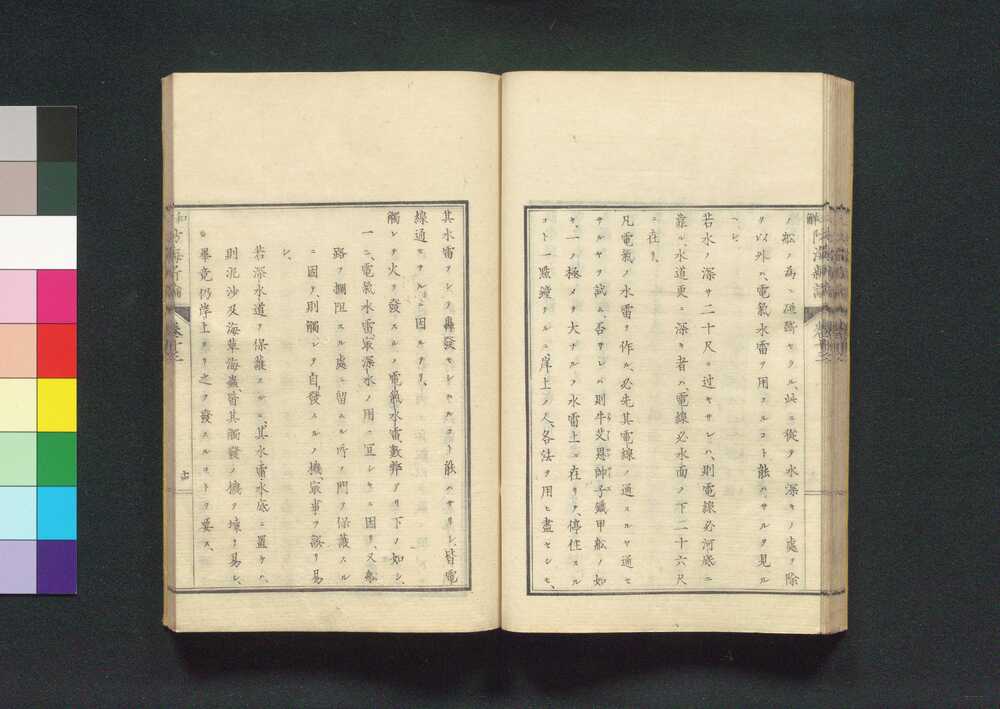 ノ船ノ為ニ砸斷セラル、此ニ從テ水深キノ處ヲ除
ク以外ハ、電氣水雷ヲ用フルコト能ハサルヲ見ル
ヘシ
若水ノ深サ二十尺ニ過キサレハ、則電線必河底ニ
靠ル、水道更ニ深キ者ハ、電線必水面ノ下二十六尺
ニ在リ、
凡電氣ノ水雷ヲ作ル、必先其電線ノ通スルヤ通セ
サルヤヲ試ム、否サレハ則牛艾恩師子鐵甲船ノ如
キ、一ノ極メテ大ナルノ水雷上ニ在リテ、停住スル
コト一點鐘ナルニ、岸上ノ人、各法ヲ用ヒ盡セシモ、
其水雷ヲシテ轟發セシムルコト能ハサリシ、皆電
線通セサルニ因ルナリ、
觸レテ火ヲ發スルノ電氣水雷數弊アリ下ノ如シ、
一ニ、電氣水雷宲深水ノ用ニ宜シキニ因リ、又船
路ヲ攔阻スル處ニ留ムル所ノ門ヲ保護スル
ニ因テ、則觸レテ自發スルノ機、宲事ヲ誤リ易
シ、
若深水道ヲ保護スルニ、其水雷水底ニ置ケハ、
則泥沙及海草海蟲、皆其觸發ノ機ヲ壊リ易シ、
畢竟仍岸上ヨリ之ヲ發スルコトヲ要ス、
卷十三